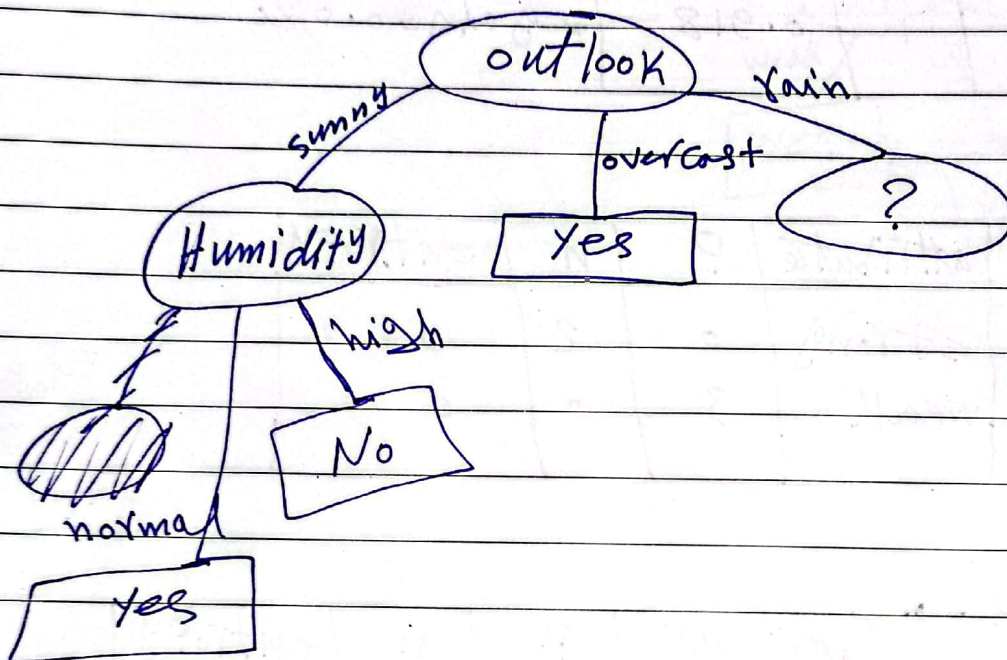 outlook
sunny
rain
overcast
?
Humidity
yes
high
No
normal
yes